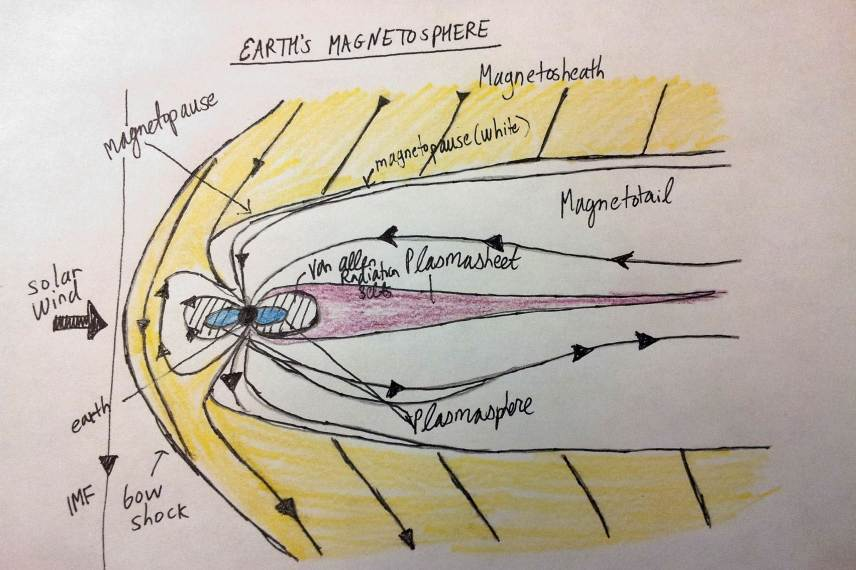 EARTH'S MAGNETOSPHERE
Magnetosheath
Magnetopause
magnetopause (white)
Magnetotail
Van allen
Radiation
Plasmasheet
solar
wind
earth
Plasmasphere
IMF
bow
shock